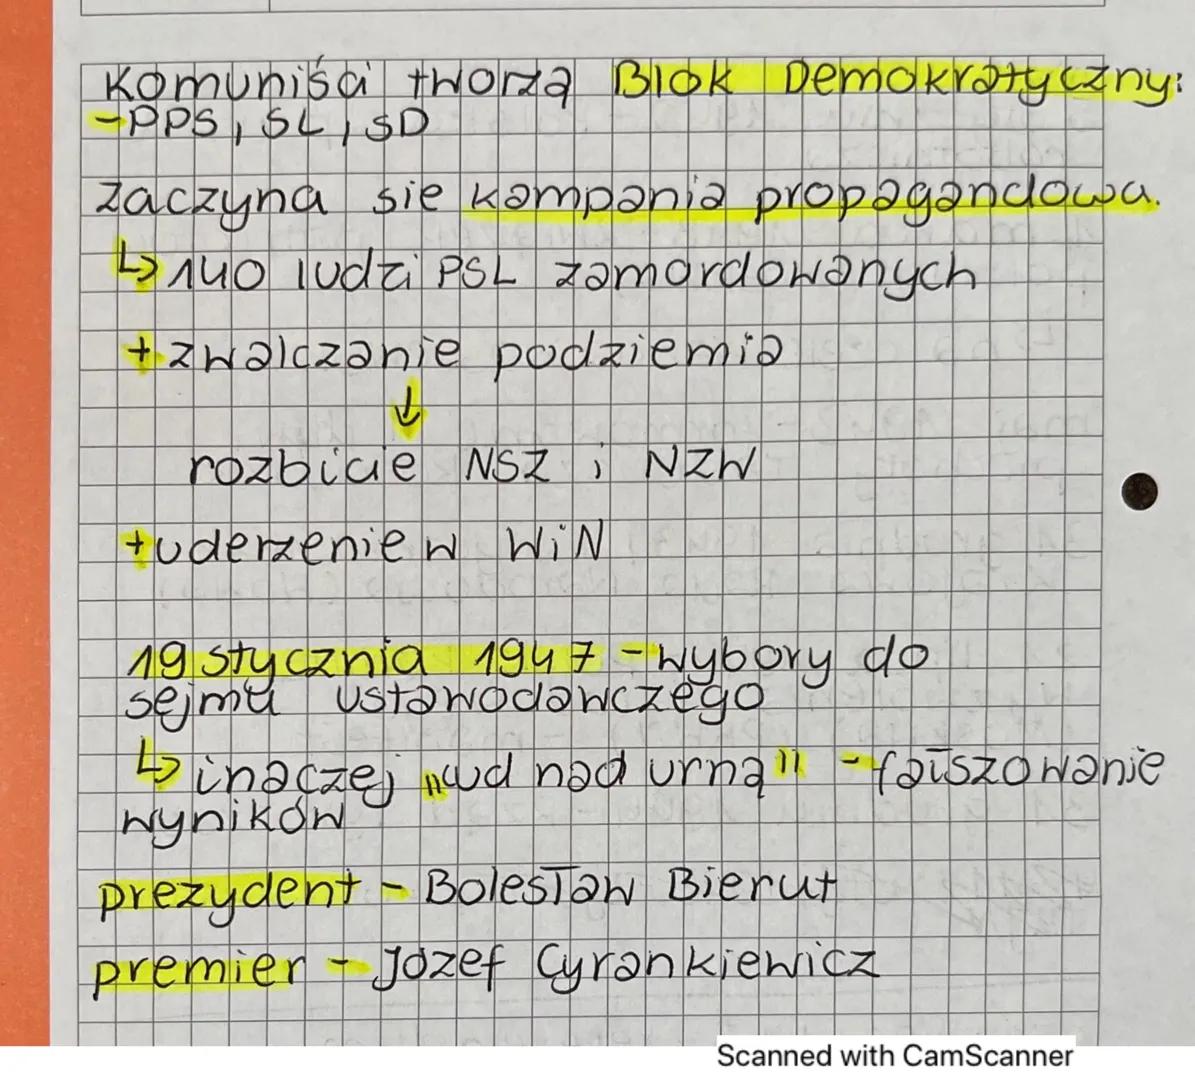 Komuniści tworzą Blok Demokratyczny:
-PPS, SL, SD
zaczyna sie kampania propagandowa.
↳ 140 ludzi PSL zamordowanych
+ zwalczanie podziemia
↓
rozbicie NSZ i NZW
+uderzenie w WiN
19 stycznia 1947 - wybory do
sejmu ustawodawczego
↳ inaczej „cud nad urną" - fałszowanie
wyników
prezydent - Bolesław Bierut
premier - Józef Cyrankiewicz
Scanned with CamScanner